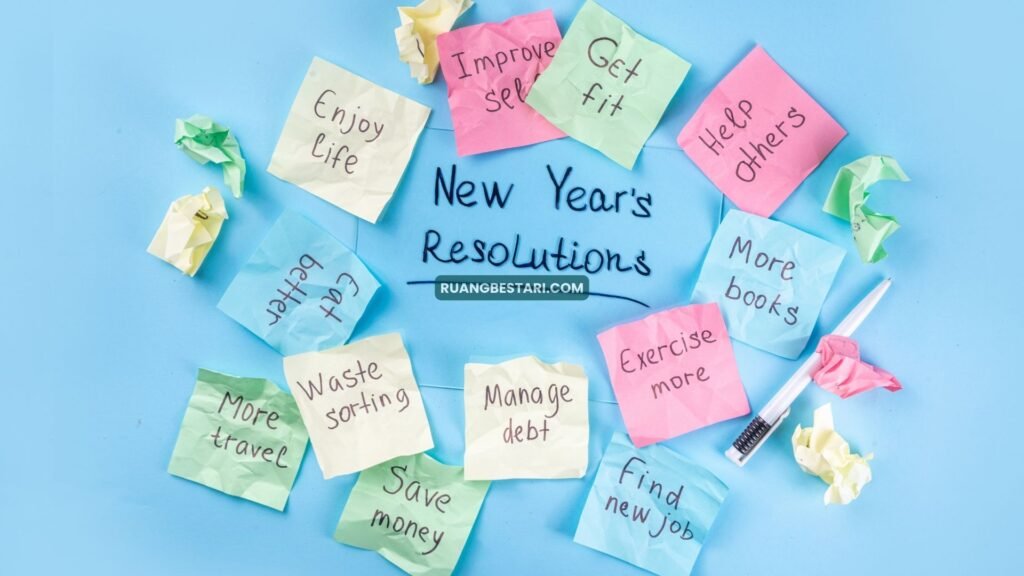 Improve
self
Get
fit
Enjoy
life
Help
Others
New Year's
Resolutions
RUANGBESTARI.COM
Eat
better
More
books
Exercise
more
Waste
sorting
Manage
debt
More
travel
Save
money
Find
new job